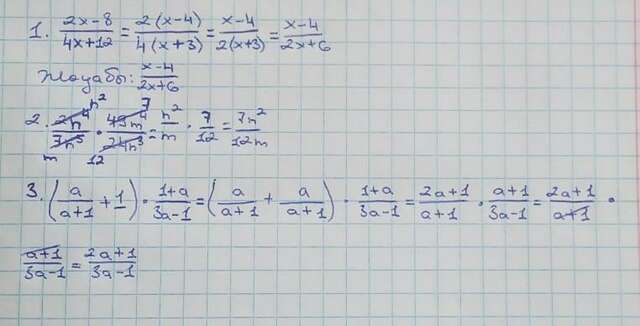 1. (2x-8)/(4x+12) = (2(x-4))/(4(x+3)) = (x-4)/(2(x+3)) = (x-4)/(2x+6)
Жауабы: (x-4)/(2x+6)
2. (2n⁴)/(7n⁵) n² m · (49m⁴)/(24n³) 7 12 = n²/m · 7/12 = 7n²/12m
3. (a/(a+1) + 1) · (1+a)/(3a-1) = (a/(a+1) + a/(a+1)) · (1+a)/(3a-1) = (2a+1)/(a+1) · (a+1)/(3a-1) = (2a+1)/(a+1) ·
(a+1)/(3a-1) = (2a+1)/(3a-1)